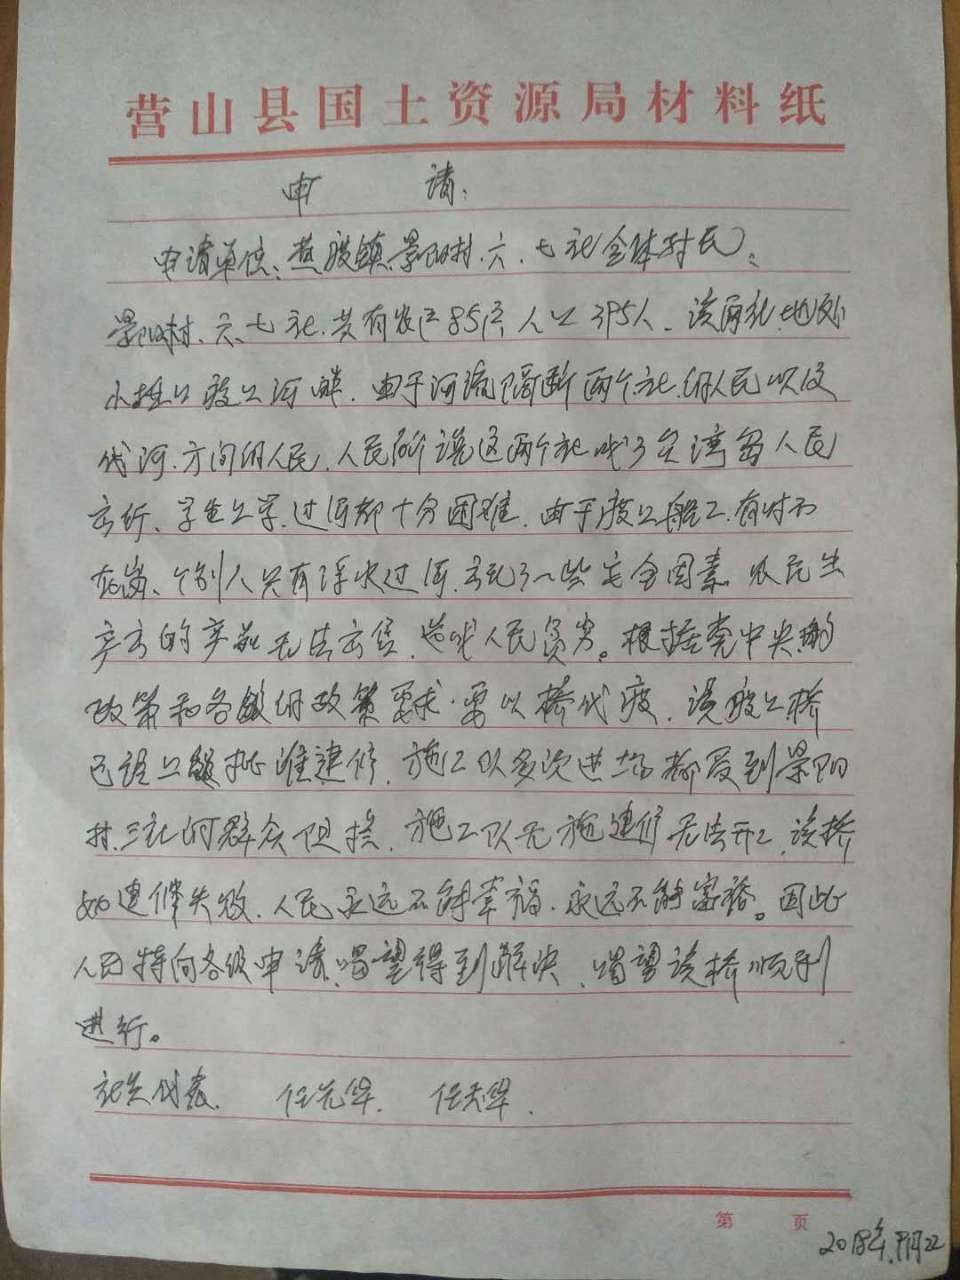 营山县国土资源局材料纸
申 请：
申请单位：燕 镇景阳村、六、七社全体村民：
景阳村、六、七社、共有农户85户、人口395人、该两社地处
小 口渡口河畔、由于河流隔断两个社的人民以及
河方向的人民、人民所说这两个社成了台湾岛人民
出行、学生上学、过河都十分困难、由于渡口船工、有时不
在岗、个别人只有浮水过河、出现了一些安全因素、农民生
产出的产品无法出售、造成人民贫穷。根据党中央的
政策和各级的政策要求、要以桥代渡、该渡口桥
已经上级批准建修、施工队多次进场都受到景阳
村、三社的群众阻挡、施工队无 建修无法开工、该桥
如建修失败、人民永远不能幸福、永远不能富裕。因此
人民特向各级申请、渴望得到解决、渴望该桥顺利
进行。
社员代表、 任元华、 任 华、
第 页
2018年 月22